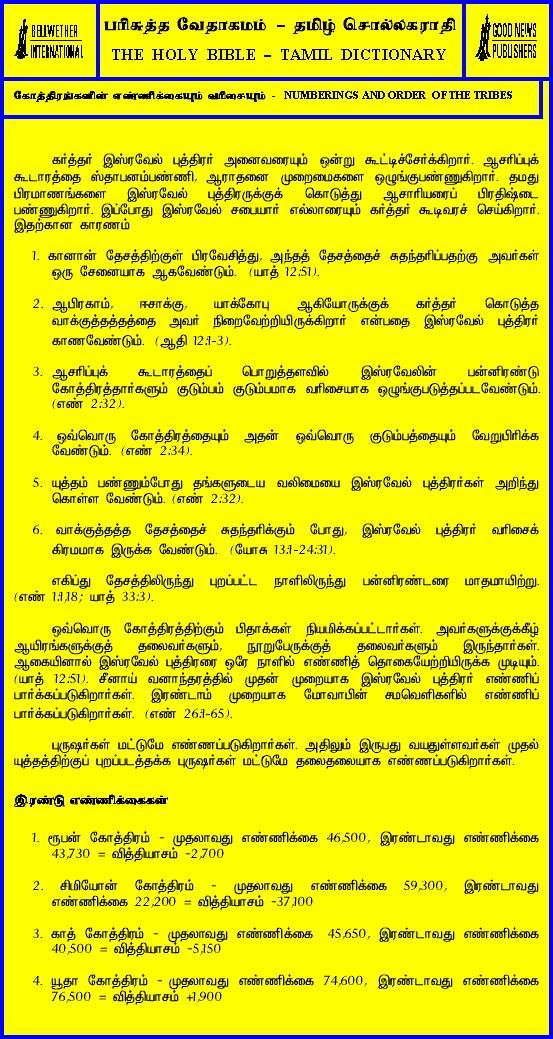 BELLWETHER
INTERNATIONAL
பரிசுத்த வேதாகமம் – தமிழ் சொல்லகராதி
THE HOLY BIBLE – TAMIL DICTIONARY
GOOD NEWS
PUBLISHERS
கோத்திரங்களின் எண்ணிக்கையும் வரிசையும் - NUMBERINGS AND ORDER OF THE TRIBES
கர்த்தர் இஸ்ரவேல் புத்திரர் அனைவரையும் ஒன்று கூட்டிச்சேர்க்கிறார். ஆசரிப்புக்
கூடாரத்தை ஸ்தாபனம்பண்ணி, ஆராதனை முறைமைகளை ஒழுங்குபண்ணுகிறார். தமது
பிரமாணங்களை இஸ்ரவேல் புத்திரருக்குக் கொடுத்து ஆசாரியரைப் பிரதிஷ்டை
பண்ணுகிறார். இப்போது இஸ்ரவேல் சபையார் எல்லாரையும் கர்த்தர் கூடிவரச் செய்கிறார்.
இதற்கான காரணம்
1. கானான் தேசத்திற்குள் பிரவேசித்து, அந்தத் தேசத்தைச் சுதந்தரிப்பதற்கு அவர்கள்
ஒரு சேனையாக ஆகவேண்டும். (யாத் 12:51).
2. ஆபிரகாம், ஈசாக்கு, யாக்கோபு ஆகியோருக்குக் கர்த்தர் கொடுத்த
வாக்குத்தத்தத்தை அவர் நிறைவேற்றியிருக்கிறார் என்பதை இஸ்ரவேல் புத்திரர்
காணவேண்டும். (ஆதி 12:1-3).
3. ஆசரிப்புக் கூடாரத்தைப் பொறுத்தளவில் இஸ்ரவேலின் பன்னிரண்டு
கோத்திரத்தார்களும் குடும்பம் குடும்பமாக வரிசையாக ஒழுங்குபடுத்தப்படவேண்டும்.
(எண் 2:32).
4. ஒவ்வொரு கோத்திரத்தையும் அதன் ஒவ்வொரு குடும்பத்தையும் வேறுபிரிக்க
வேண்டும். (எண் 2:34).
5. யுத்தம் பண்ணும்போது தங்களுடைய வலிமையை இஸ்ரவேல் புத்திரர்கள் அறிந்து
கொள்ள வேண்டும். (எண் 2:32).
6. வாக்குத்தத்த தேசத்தைச் சுதந்தரிக்கும் போது, இஸ்ரவேல் புத்திரர் வரிசைக்
கிரமமாக இருக்க வேண்டும். (யோசு 13:1-24:31).
எகிப்து தேசத்திலிருந்து புறப்பட்ட நாளிலிருந்து பன்னிரண்டரை மாதமாயிற்று.
(எண் 1:1,18; யாத் 33:3).
ஒவ்வொரு கோத்திரத்திற்கும் பிதாக்கள் நியமிக்கப்பட்டார்கள். அவர்களுக்குக்கீழ்
ஆயிரங்களுக்குத் தலைவர்களும், நூறுபேருக்குத் தலைவர்களும் இருந்தார்கள்.
ஆகையினால் இஸ்ரவேல் புத்திரரை ஒரே நாளில் எண்ணித் தொகையேற்றியிருக்க முடியும்.
(யாத் 12:51). சீனாய் வனாந்தரத்தில் முதன் முறையாக இஸ்ரவேல் புத்திரர் எண்ணிப்
பார்க்கப்படுகிறார்கள். இரண்டாம் முறையாக மோவாபின் சமவெளிகளில் எண்ணிப்
பார்க்கப்படுகிறார்கள். (எண் 26:1-65).
புருஷர்கள் மட்டுமே எண்ணப்படுகிறார்கள். அதிலும் இருபது வயதுள்ளவர்கள் முதல்
யுத்தத்திற்குப் புறப்படத்தக்க புருஷர்கள் மட்டுமே தலைதலையாக எண்ணப்படுகிறார்கள்.
இரண்டு எண்ணிக்கைகள்
1. ரூபன் கோத்திரம் - முதலாவது எண்ணிக்கை 46,500, இரண்டாவது எண்ணிக்கை
43,730 = வித்தியாசம் -2,700
2. சிமியோன் கோத்திரம் - முதலாவது எண்ணிக்கை 59,300, இரண்டாவது
எண்ணிக்கை 22,200 = வித்தியாசம் -37,100
3. காத் கோத்திரம் - முதலாவது எண்ணிக்கை 45,650, இரண்டாவது எண்ணிக்கை
40,500 = வித்தியாசம் -5,150
4. யூதா கோத்திரம் - முதலாவது எண்ணிக்கை 74,600, இரண்டாவது எண்ணிக்கை
76,500 = வித்தியாசம் +1,900